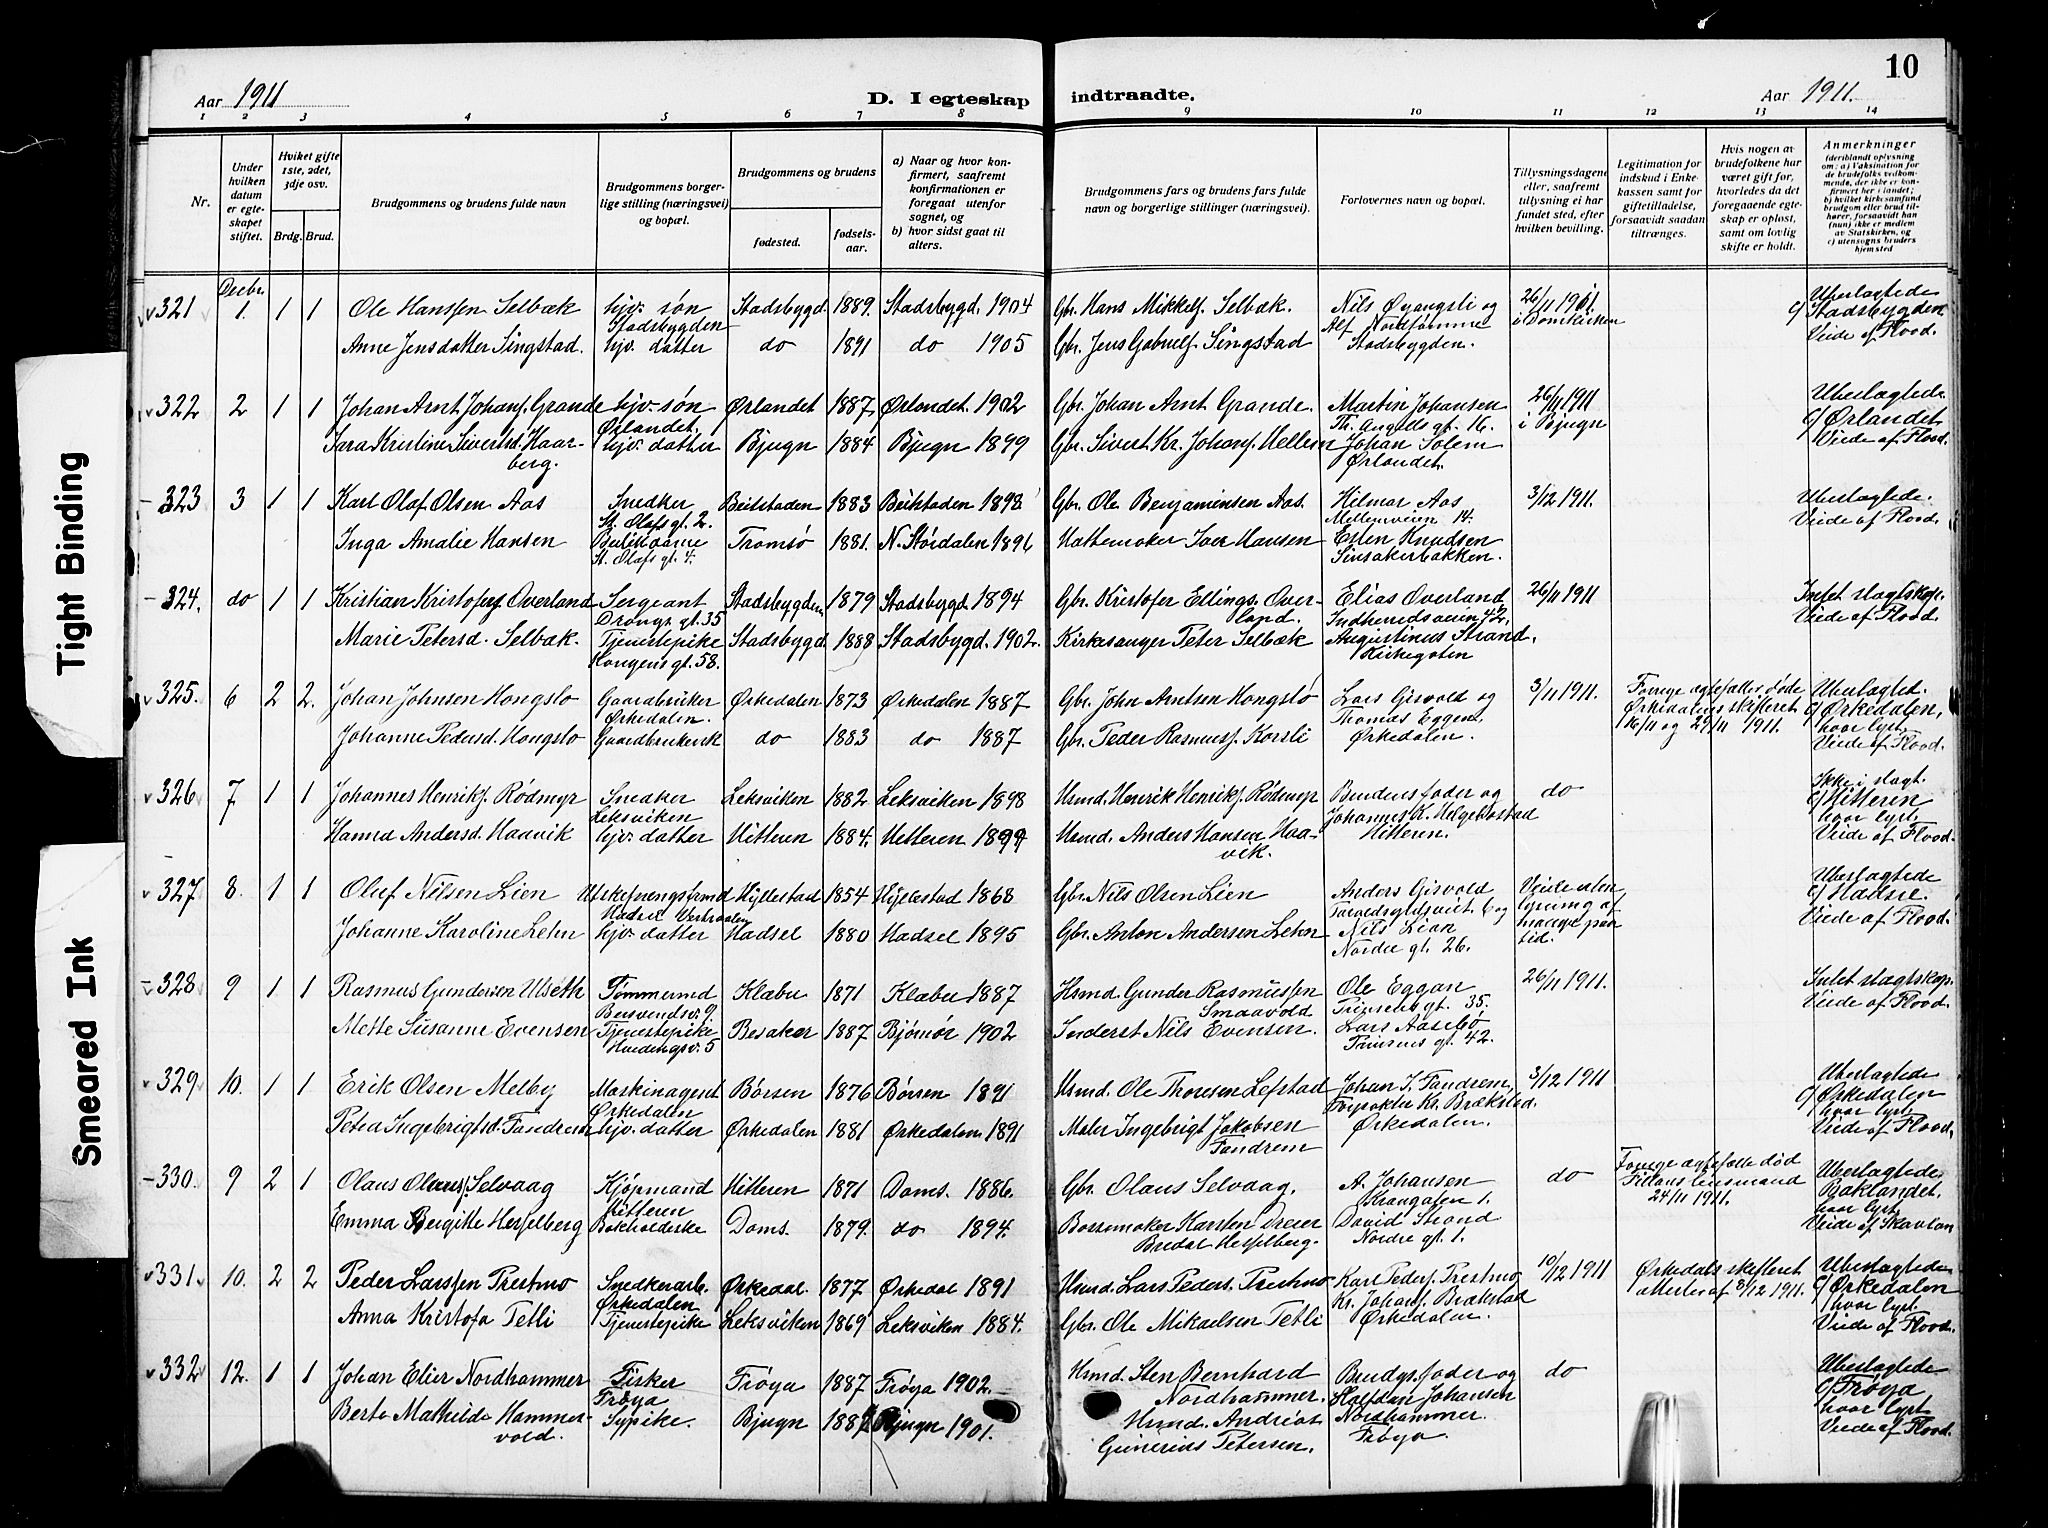 10
Aar 1911
D. I egteskap indtraadte.
Aar 1911.
1 2 3 4 5 6 7 8 9 10 11 12 13 14
Nr.
Under hvilken datum er egteskapet stiftet.
Hvilket gifte 1ste, 2det, 3dje osv.
Brdg. Brud.
Brudgommens og brudens fulde navn
Brudgommens borgerlige stilling (næringsvei) og bopæl.
Brudgommens og brudens
fødested. fødselsaar.
a) Naar og hvor konfirmert, saafremt konfirmationen er foregaat utenfor sognet, og
b) hvor sidst gaat til alters.
Brudgommens fars og brudens fars fulde navn og borgerlige stillinger (næringsvei).
Forlovernes navn og bopæl.
Tillysningsdagene eller, saafremt tillysning ei har fundet sted, efter hvilken bevilling.
Legitimation for indskud i Enkekassen samt for giftetilladelse, forsaavidt saadan tiltrænges.
Hvis nogen av brudefolkene har været gift før, hvorledes da det foregaaende egteskap er opløst, samt om lovlig skifte er holdt.
Anmerkninger (deriblandt oplysning om: a) Vaksination for de brudefolks vedkommende, der ikke er konfirmert her i landet; b) hvilket kirkesamfund brudgom eller brud tilhører, forsaavidt han (hun) ikke er medlem av Statskirken, og c) utensogns bruders hjemsted
Decbr.
321 1. 1 1 Ole Hansen Selbæk hjv. søn Stadsbygd. 1889. Stadsbygd. 1904 Gbr. Hans Mikkels. Selbæk. Nils Øyangsli og 26/11 1911 Ubeslægtede
Stadsbygden Alf Nordhammer i Domkirken c/ Stadsbygden
Anne Jensdatter Singstad. hjv. datter do 1891 do 1905 Gbr. Jens Gabriels. Singstad Stadsbygden. Viede af Flood.
322 2 1 1 Johan Arnt Johans. Grande hjv. søn Ørlandet 1887. Ørlandet. 1902 Gbr. Johan Arnt Grande. Martin Johansen 26/11 1911 Ubeslægtede
Ørlandet. Th. Angells gt. 16. i Bjugn c/ Ørlandet
Sara Kristine Sivertsd. Haarberg. hjv. datter Bjugn 1884 Bjugn 1899 Gbr. Sivert Kr. Johans. Hellem Johan Solem Viede af Flood.
Ørlandet.
323 3 1 1 Karl Olaf Olsen Aas Snedker Beitstaden 1883 Beitstaden 1898 Gbr. Ole Benjaminsen Aas. Hilmar Aas 3/12 1911. Ubeslægtede.
St. Olafs gt. 2. Mellemveien 14. Viede af Flood.
Inga Amalie Hansen Butikdame Tromsø 1881. N. Stördalen 1896 Hattemaker Iver Hansen Esten Knudsen
St. Olafs gt. 4. Sinsakerbakken.
324. do 1 1 Kristian Kristofers. Overland Sergeant Stadsbygden 1879 Stadsbygd 1894 Gbr. Kristofer Ellings. Overland. Elias Overland 26/11 1911 Intet slagtskap.
Drongs. gt. 35 Indherredsveien 42, Viede af Flood.
Marie Petersd. Selbæk. Tjenestepike Stadsbygd. 1888 Stadsbygd. 1902. Kirkesanger Peter Selbæk Augustinus Strand.
Kongens gt. 58. Kirkegaten
325. 6 2 2. Johan Johnsen Hongslo Gaardbruker Ørkedalen 1873 Ørkedalen 1887 Gbr. John Arntsen Hongslo Lars Gisvold og 3/11 1911. Forrige ægtefæller døde Ubeslægtet.
Ørkedalen. Thomas Eggen, Ørkedalens skifteret c/ Ørkedalen,
Johanne Pedersd. Hongslo Gaardbrukersk do 1883 do 1887 Gbr. Peder Rasmuss. Korsli Ørkedalen. 16/11 og 29/11 1911. hvor lyst.
Viede af Flood.
326 7 1 1 Johannes Henriks. Rødmyr Snedker Leksviken 1882 Leksviken 1898 Husmd. Henrik Henriks. Rødmyr Brudens fader og do Ikke i slagt.
Leksviken Johannes K. Helgebostad c/ Hitteren
Hanna Andersd. Haavik hjv. datter Hitteren 1884. Hitteren 1899 Husmd. Anders Hansen Haavik. Hitteren. hvor lyst.
Viede af Flood.
327 8. 1 1 Oluf Nilsen Lien Utskifningsfrmd Hyllestad 1854 Hyllestad 1868 Gbr. Nils Olsen Lien Anders Gisvold Viede uten Ubeslægtede
Hadsel Vesteraalen lysning af c/ Hadsel
Johanne Karoline Lehn hjv. datter Hadsel 1880 Hadsel 1895 Gbr. Anton Andersen Lehn Nils Lien mangel paa Viede af Flood.
Nordre gt. 26. tid.
328 9 1 1 Rasmus Gundersen Ulseth Tømmermd Klæbu 1871 Klæbu 1887 Hsmd. Gunder Rasmussen Smaavold Ole Eggan 26/11 1911. Intet slagtskap.
Bersvendsv. 9. Prinsens gt. 35. Viede af Flood.
Mette Susanne Evensen Tjenestepike Besaker 1887 Bjömör 1902 Inderst Nils Evensen. Lars Aasebö,
Prinsens gt. 42.
329 10. 1 1 Erik Olsen Melby Maskinagent Børsen 1876 Børsen 1891 Husmd. Ole Thoresen Lefstad Johan I. Fandrem, 3/12 1911 Ubeslægtede
Ørkedalen Forpakter Kr. Brækstad. c/ Ørkedalen
Petra Ingebrigtsd. Fandrem hjv. datter Ørkedalen 1881 Ørkedalen 1891 Maler Ingebrigt Jakobsen Fandrem Ørkedalen. hvor lyst.
Viede af Flood.
330. 9 2 1 Olaus Olauss. Selvaag Kjøpmand Hitteren 1871 Doms. 1886. Gbr. Olaus Selvaag. A. Johansen do Forrige ægtefælle død Ubeslægtede
Hitteren Krangaten 1. Fillans lensmand Baklandet.
Emma Birgitte Hesselberg Bokholderske Doms. 1879. do 1894. Børsemaker Karsten Dreier Bredal Hesselberg. David Strand 24/11 1911. hvor lyst.
Nordre gt. 1. Viede af Skavlan
331. 10. 2 2 Peder Larssen Prestmo Snedkerarb. Ørkedal 1877 Ørkedal 1891 Husmd. Lars Peders. Prestmo Karl Peders. Prestmo 10/12 1911 Ørkedals skifteret Ubeslægtede
Ørkedalen Kr. Johans. Brækstad attester af 8/12 1911. c/ Ørkedalen
Anna Kristofa Tetli Tjenestepike Leksviken 1869 Leksviken 1884. Gbr. Ole Mikaelsen Tetli Ørkedalen. hvor lyst.
Viede af Flood.
332 12. 1 1 Johan Elier Nordhammer Fisker Frøya 1887 Frøya 1902. Husmd. Sten Bernhard Nordhammer. Brudgs. fader og do Ubeslægtede
Frøya Halfdan Johansen c/ Frøya
Berte Mathilde Hammervold. Sypike Bjugn 1887 Bjugn 1901. Husmd. Andreas Gunerius Petersen. Nordhammer. hvor lyst.
Frøya. Viede af Flood.
Tight Binding
Smeared Ink